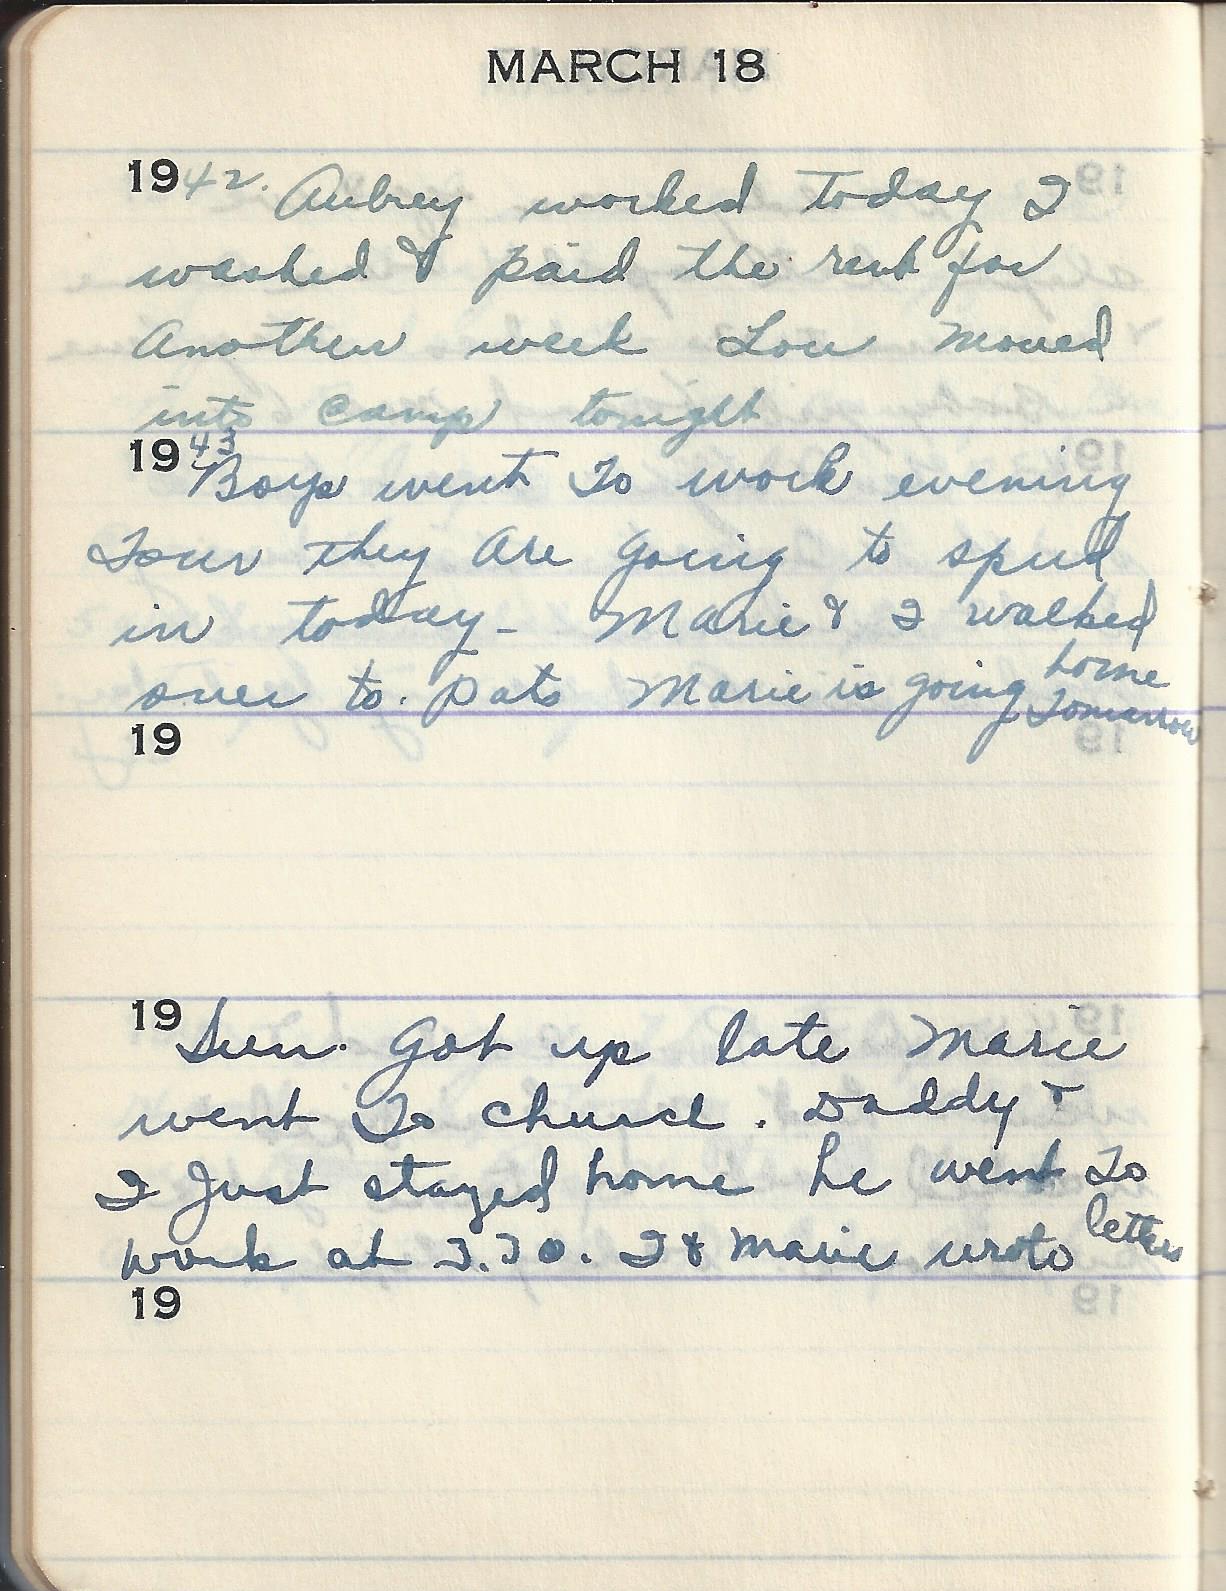 MARCH 18
1942. Aubrey worked today I
washed & paid the rent for
Another week Lou moved
into camp tonight
1943
Boys went To work evening
Tour they Are Going to spud
in today - Marie & I walked
over to. Pats Marie is going home
Tomarrow
19
19 Sun. Got up late Marie
went To church. Daddy &
I Just stayed home he went To
work at 3.30. I & Marie wrote letters
19